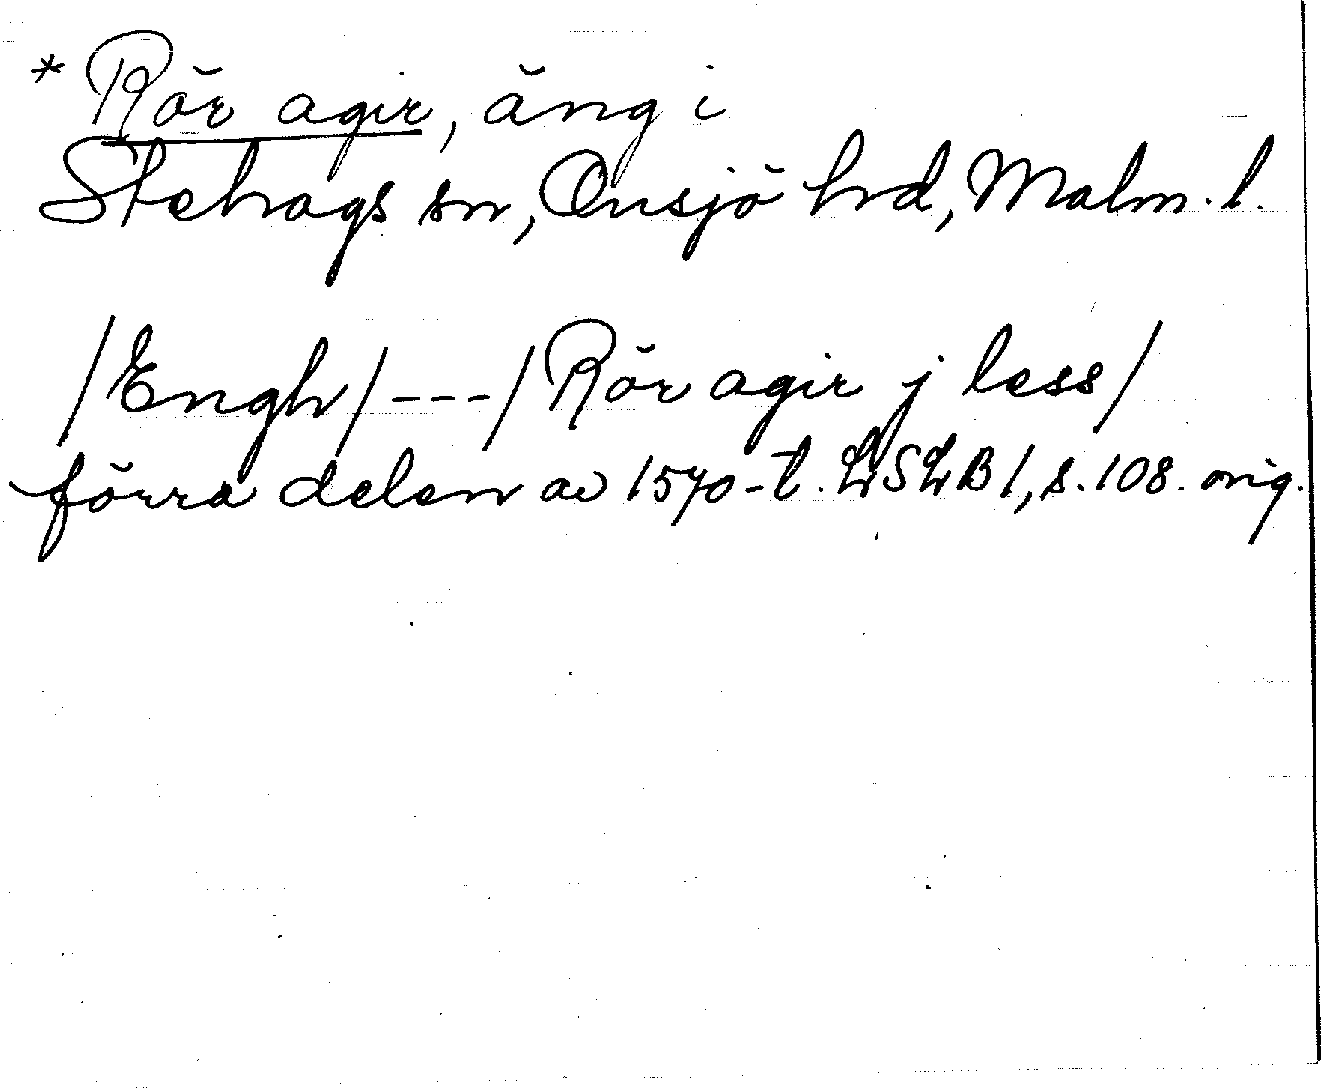 * Rör agir, äng i
Stehags sn, Onsjö hrd, Malm. l.
/Engh/---/Rör agir j less/
förra delen av 1570-t. LSLB 1, s. 108. orig.